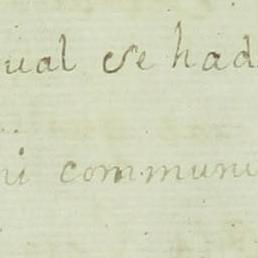 ual se had
ni communi